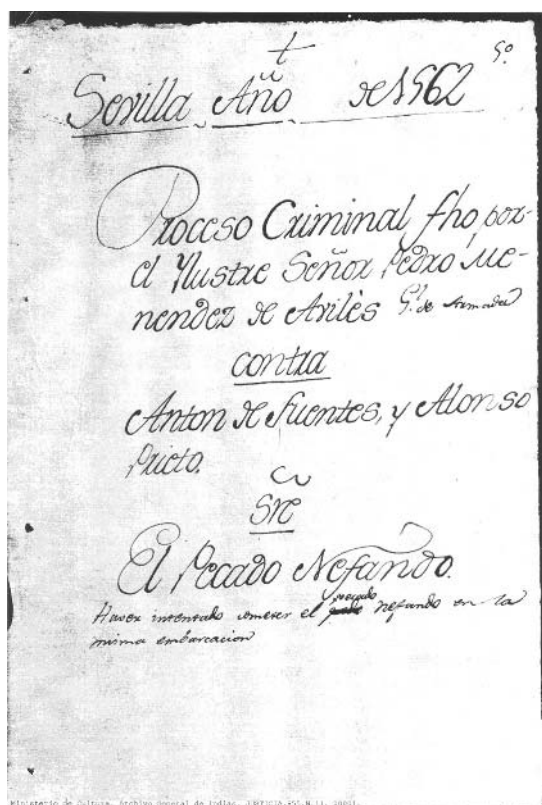 †
5º
Sevilla Año de 1562
Proceso Criminal fho, por
el Yllustre Señor Pedro Me-
nendez de Avilès Gl. de Armada
contra
Anton de fuentes, y Alonso
Prieto.
Sre
El Pecado Nefando.
Haver intentado cometer el pecado nefando en la
misma embarcacion
Ministerio de Cultura. Archivo General de Indias.